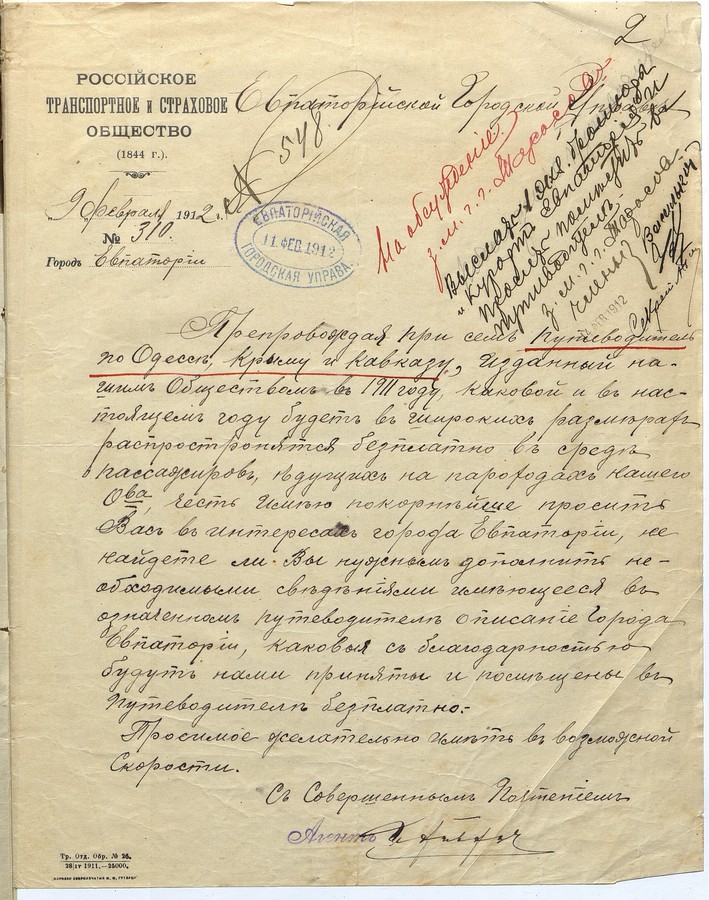 2
РОССІЙСКОЕ
ТРАНСПОРТНОЕ и СТРАХОВОЕ
ОБЩЕСТВО
(1844 г.).
„9„ февраля 1912 г.
№ 310
Городъ Евпаторіи
Евпаторійской Городской Управѣ
№ 548.
ЕВПАТОРІЙСКАЯ
11 ФЕВ 1912
ГОРОДСКАЯ УПРАВА.
На обсужденіе
з. м. г. г. Тарасова
Выслать 1 экз. брошюры
„Курортъ Евпаторія и
просить помѣстить въ
путеводитель
з. м. г. г. Тарасова
Члены
Секретарь
1912
Препровождая при семъ Путеводитель
по Одессѣ, Крыму и Кавказу, изданный на-
шимъ Обществомъ въ 1911 году, каковой и въ нас-
тоящемъ году будетъ въ широкихъ размѣрахъ
распространятся безплатно въ средѣ
пассажировъ, ѣдущихъ на пароходахъ нашего
О-ва, честь имѣю покорнѣйше просить
Васъ въ интересахъ города Евпаторіи, не
найдете ли Вы нужнымъ дополнить не-
обходимыми свѣдѣніями имѣющееся въ
означенномъ путеводителѣ описаніе Города
Евпаторіи, каковыя съ благодарностью
будутъ нами приняты и помѣщены въ
Путеводителѣ безплатно.-
Просимое желательно имѣть въ возможной
Скорости.
Съ Совершеннымъ Почтеніемъ
Агентъ
Тр. Отд. Обр. № 26.
28/IV 1911.—25000.